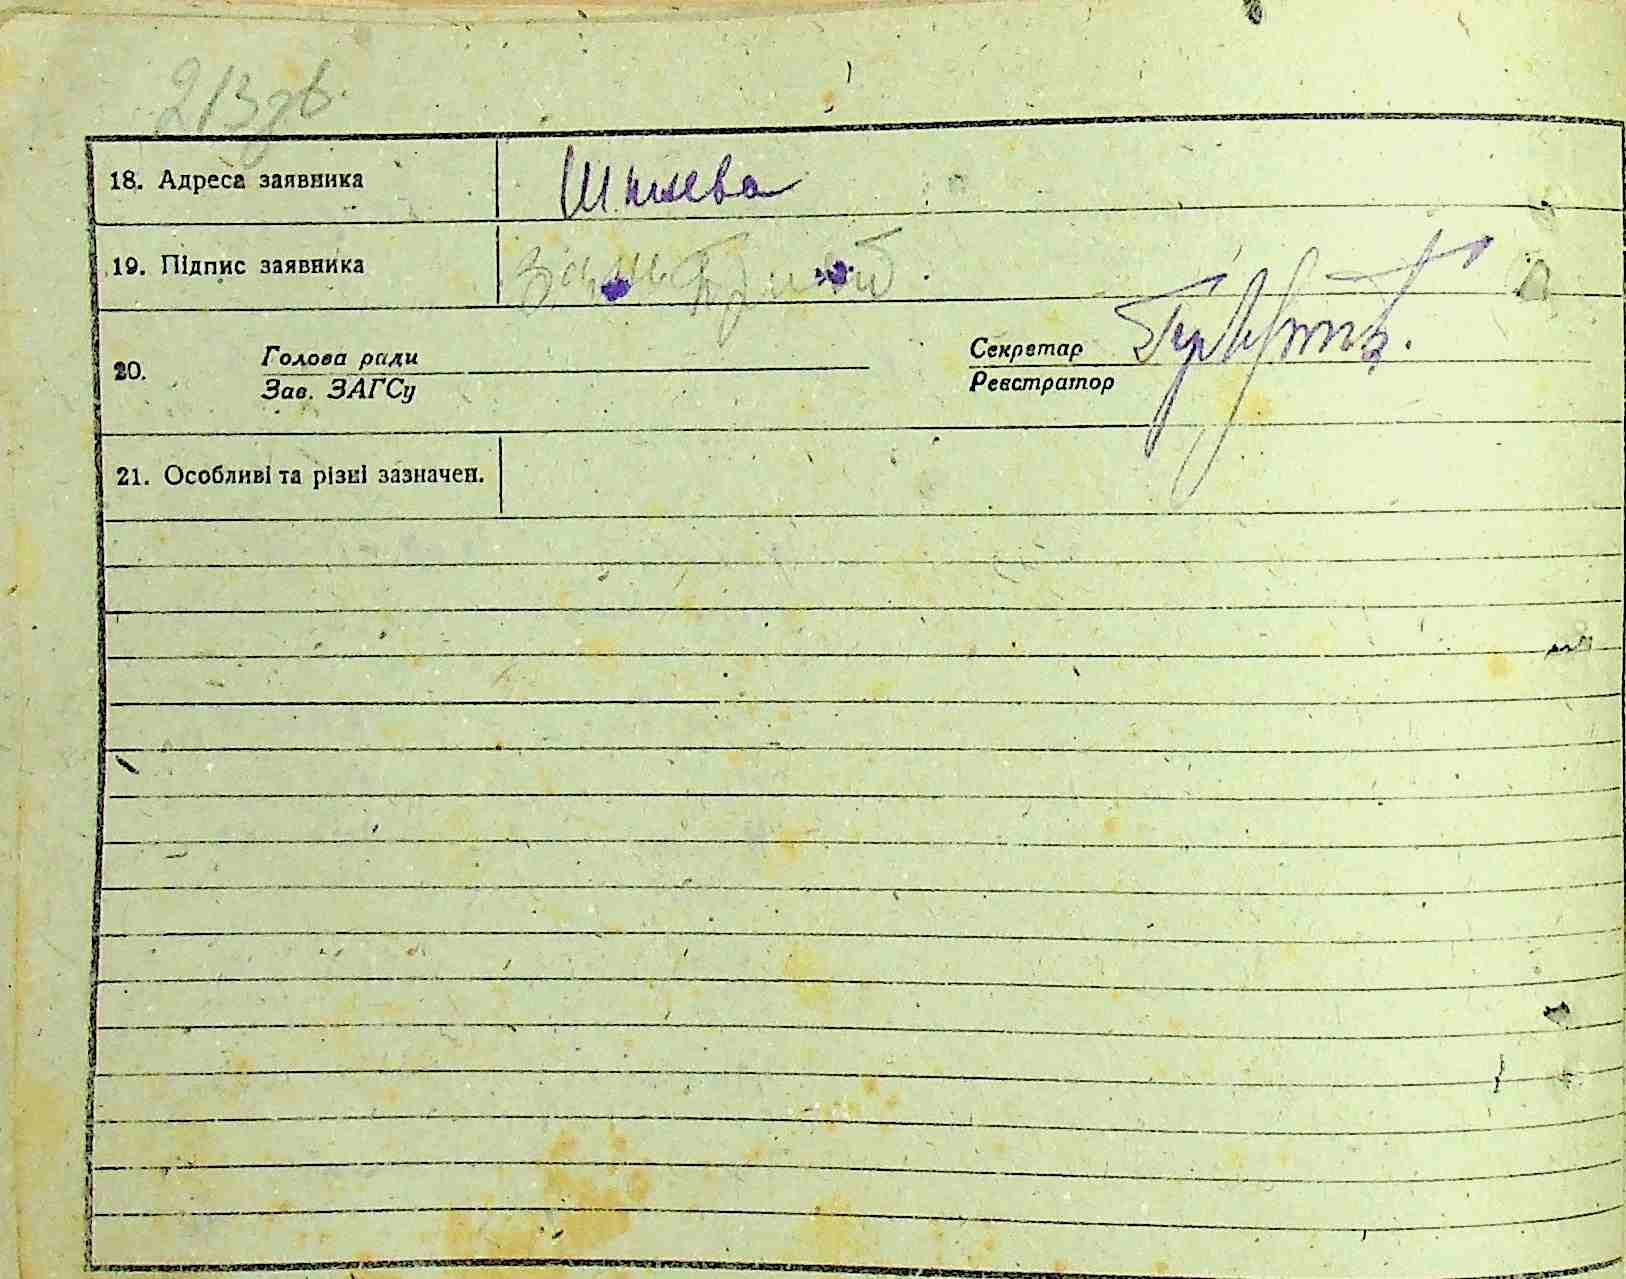 213 зв.
18. Адреса заявника
19. Підпис заявника
20. Голова ради
Зав. ЗАГСу
Секретар
Реєстратор
21. Особливі та різні зазначен.